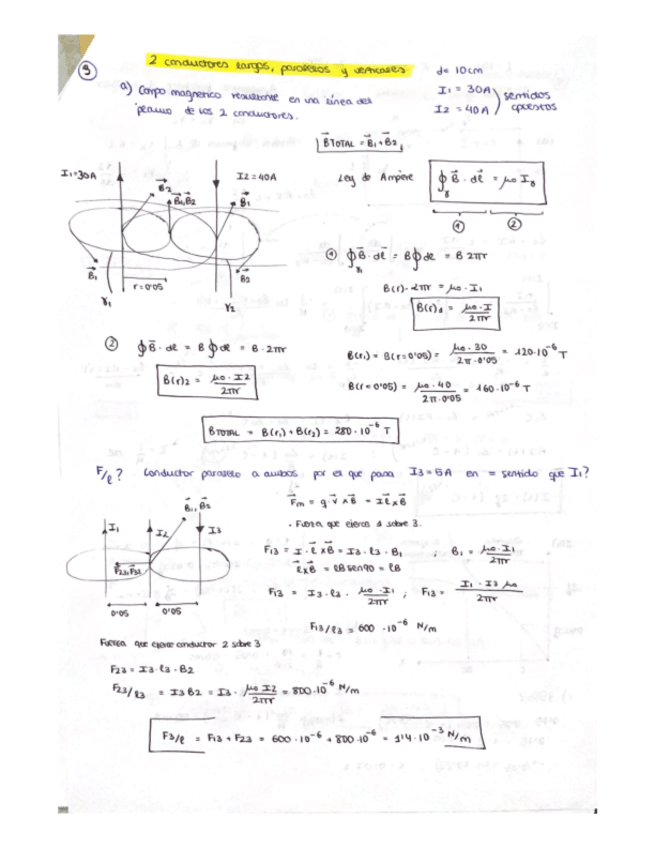 9
2 conductores largos, paralelos y verticales
d= 10cm
I1 = 30A
I2 = 40A ) sentidos opuestos
a) Campo magnético resultante en una línea del
plano de los 2 conductores.
B⃗TOTAL = B⃗1 + B⃗2
Ley de Ampère
∮γ B⃗ · dℓ⃗ = μ0 Iγ
① ②
I1=30A
I2 = 40A
B⃗2
B⃗1,B⃗2
B⃗1
B⃗1
B⃗2
r = 0'05
γ1
γ2
① ∮γ1 B⃗ · dℓ⃗ = B∮dℓ = B 2πr
B(r) · 2πr = μ0 · I1
B(r)1 = μ0 · I / 2πr
② ∮ B⃗ · dℓ = B ∮ dℓ = B · 2πr
B(r)2 = μ0 · I2 / 2πr
B(r1) = B(r = 0'05) = μ0 · 30 / 2π · 0'05 = 120·10⁻⁶ T
B(r = 0'05) = μ0 · 40 / 2π·0'05 = 160·10⁻⁶ T
BTOTAL = B(r1) + B(r2) = 280 · 10⁻⁶ T
F/ℓ? Conductor paralelo a ambos por el que pasa I3 = 5A en = sentido que I1?
B⃗1, B⃗2
I1
I2
I3
F⃗23, F⃗32
0'05
0'05
F⃗m = q · v⃗ x B⃗ = I ℓ⃗ x B⃗
· Fuerza que ejerce 1 sobre 3.
F13 = I · ℓ⃗ x B⃗ = I3 · ℓ3 · B1 ; B1 = μ0 · I1 / 2πr
ℓ⃗ x B⃗ = ℓB sen90 = ℓB
F13 = I3 · ℓ3 · μ0 · I1 / 2πr ; F13 = I1 · I3 μ0 / 2πr
F13/ℓ3 = 600 · 10⁻⁶ N/m
Fuerza que ejerce conductor 2 sobre 3
F23 = I3 · ℓ3 · B2
F23/ℓ3 = I3 B2 = I3 · μ0 I2 / 2πr = 800·10⁻⁶ N/m
F3/ℓ = F13 + F23 = 600 · 10⁻⁶ + 800·10⁻⁶ = 1'4·10⁻³ N/m